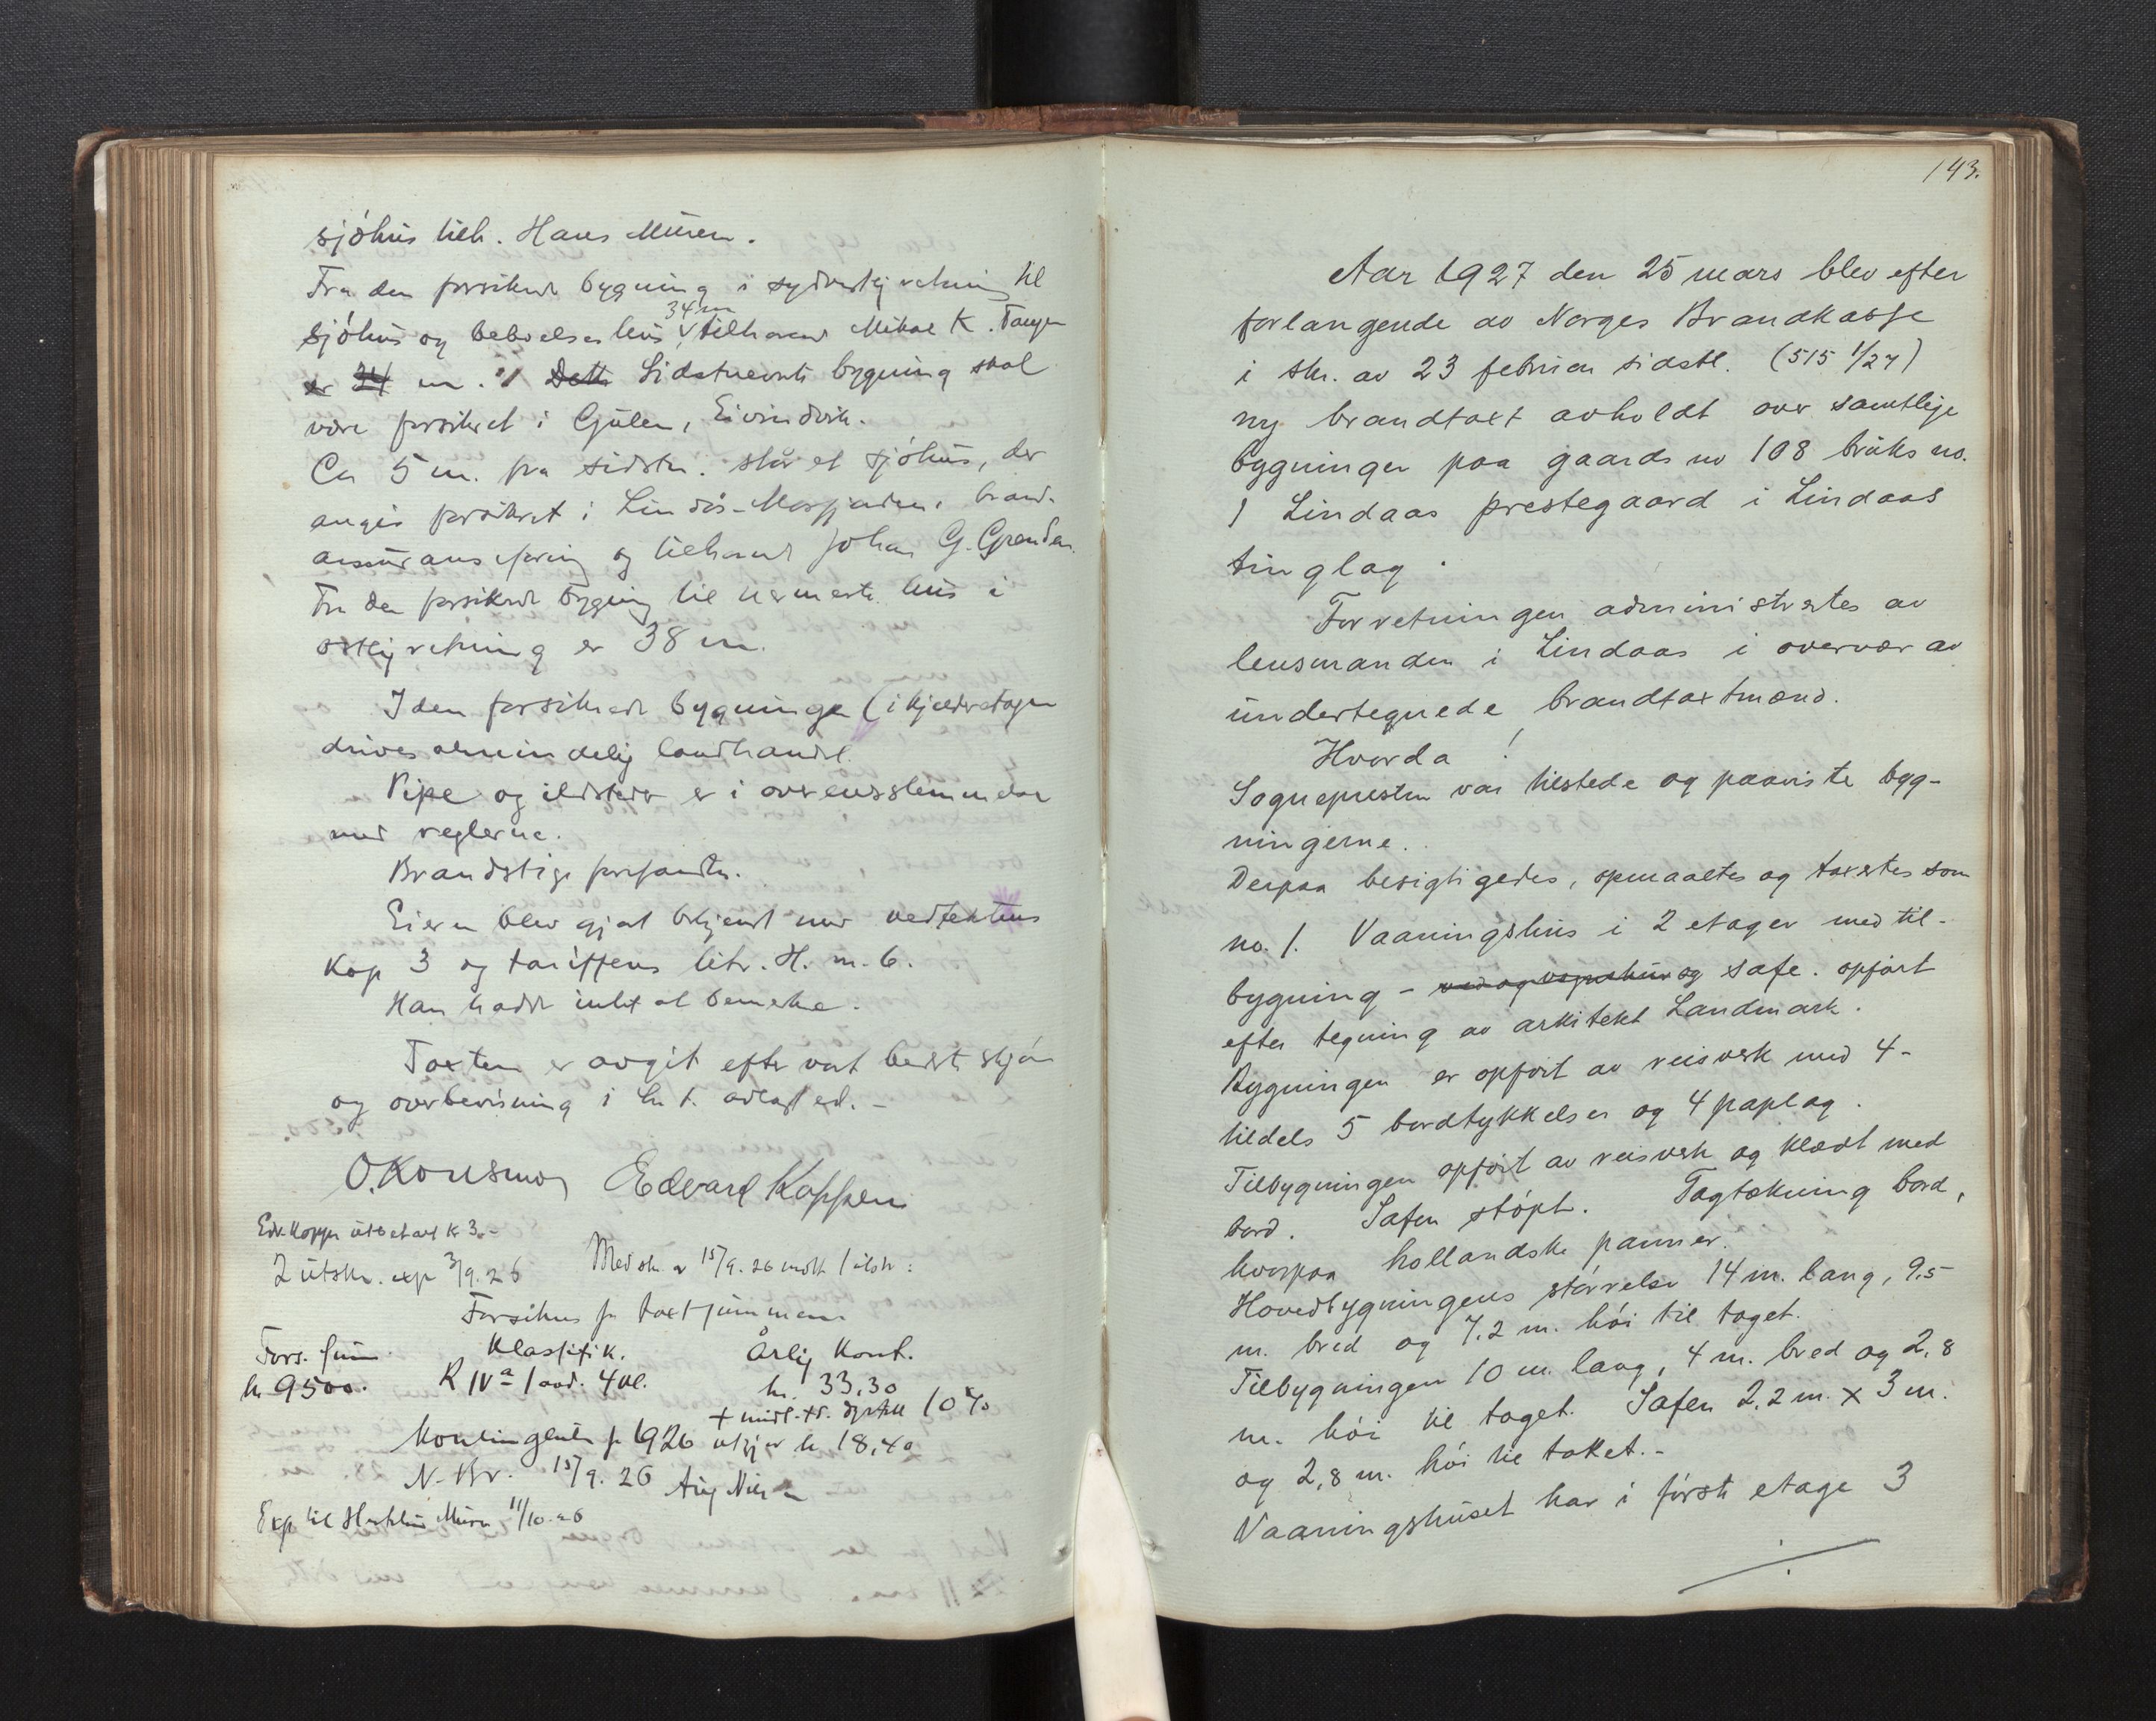 sjöhus tilh. Hans Muren.
Fra den forsikrede bygning i sydvestlig retning til
34 m
sjöhus og beboelseshus tilhörende Mikal K.
er 34 m. Dette Sidstnevnte bygning skal
være forsikret i Gulen, Eivindvik.
Ca 5 m. fra sidstn. står et sjöhus, der
angis forsikret i Lindås-Masfjorden brand-
assuranseforening og tilhörende Johan G.
Fra den forsikrede bygning til nærmeste hus i
östlig retning er 38 m.
I den forsikrede bygninge (i kjelderetagen
drives almindelig landhandel.
Pipe og ildsteder er i overensstemmelse
med reglerne.
Brandstige forefandtes.
Eieren blev gjort bekjent med vedtektens
Kap 3 og tariffens litr. H. m. 6.
Han hadde intet at bemerke.
Taxten er avgit efter vort bedste skjön
og overbevisning i h. t. avlagt ed. -
O. Konsmo Edvard Koppen
Edv. Koppen utbetalt kr 3.-
2 utskr. exp 3/9. 26 Med skr. av 15/9. 26 mott 1 utskr:
Forsikres for taxtsummen
Fors. sum Klassifik. Årlig Kont.
kr. 9500. R IVa 1 avd. 4 kl. kr. 33,30
+ midl. dyrtill 10%
Kontingenten for 1926 utgjør kr 18,40
N. Br. 15/9. 26 Aug Nielsen
Exp til Muren 11/10-26
143.
Aar 1927 den 25 mars blev efter
forlangende av Norges Brandkasse
i skr. av 23 februar sidstl. (515 1/27)
ny brandtaxt avholdt over samtlige
bygninger paa gaards no 108 bruks no.
1 Lindaas prestegaard i Lindaas
tinglag.
Forretningen administrertes av
lensmanden i Lindaas i overvær av
undertegnede brandtaxtmænd.
Hvorda!
Sognepresten var tilstede og paaviste byg-
ningerne.
Derpaa besigtigedes, opmaaltes og taxertes som
no. 1. Vaaningshus i 2 etager med til-
bygning - og safe. opfört
efter tegning av arkitekt Landmark.
Bygningen er opfört av reisverk med 4-
tildels 5 bordtykkelser og 4 paplag.
Tilbygningen opfört av reisverk og klædt med
bord. Safen stöpt. Tagtækning bord,
hvorpaa hollandske panner.
Hovedbygningens störrelse 14 m. lang, 9.5
m. bred og 7.2 m. höi til taget.
Tilbygningen 10 m. lang, 4 m. bred og 2,8
m. höi til taget. Safen 2,2 m. x 3 m.
og 2,8 m. höi til taket.-
Vaaningshuset har i förste etage 3